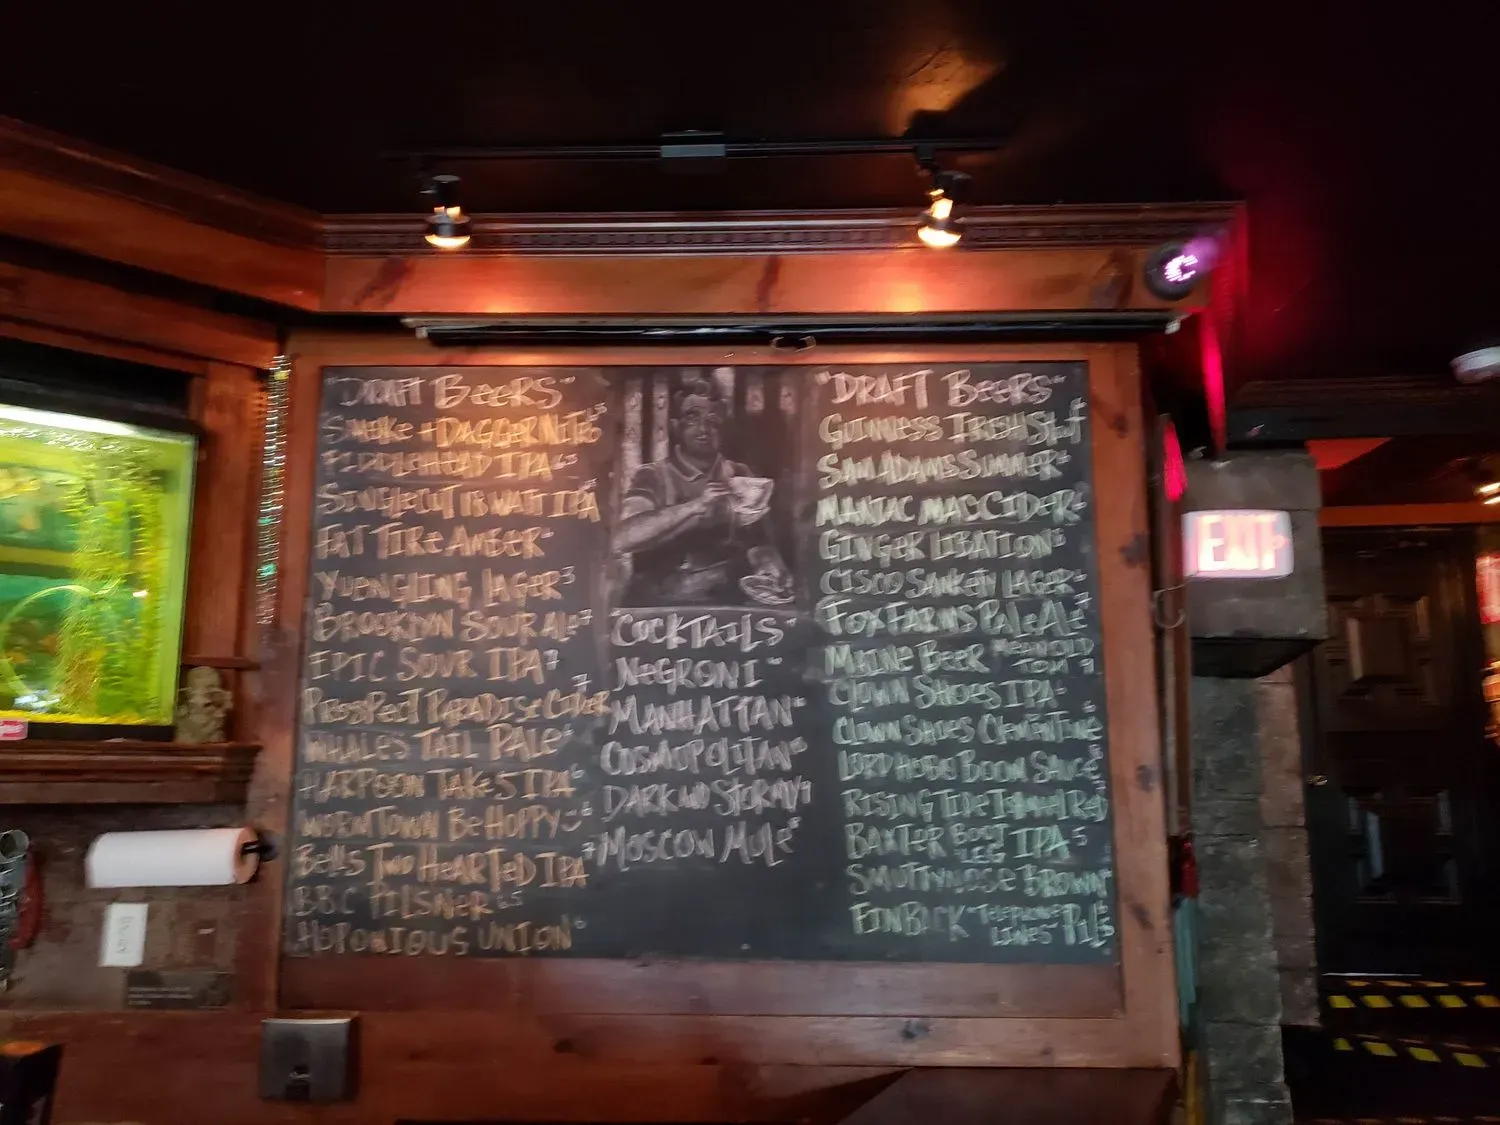 "DRAFT BEERS"
SMOKE + DAGGER NITRO
FIDDLEHEAD IPA
SINGLECUT IPA
FAT TIRE AMBER
YUENGLING LAGER 5
BROOKLYN SOUR ALE 7
EPIC SOUR IPA 7
PROSPECT PARADISE CIDER 7
WHALES TAIL PALE
HARPOON TAKE 5 IPA
BE HOPPY
BELLS TWO HEARTED IPA 7
BBC PILSNER
UNION
COCKTAILS
NEGRONI
MANHATTAN
COSMOPOLITAN
DARK AND STORMY
MOSCOW MULE
"DRAFT BEERS"
GUINNESS IRISH STOUT
SAM ADAMS SUMMER
MANIAC MAC CIDER
GINGER LIBATION
CISCO SANKATY LAGER
FOX FARMS PALE ALE 7
MAINE BEER
CLOWN SHOES IPA
CLOWN SHOES CLEMENTINE
LORD HOBO BOOM SAUCE
RISING TIDE RED
BAXTER BOOT LEG IPA 5
SMUTTYNOSE BROWN
FINBACK "TELEPHONE LINES" PILS
EXIT